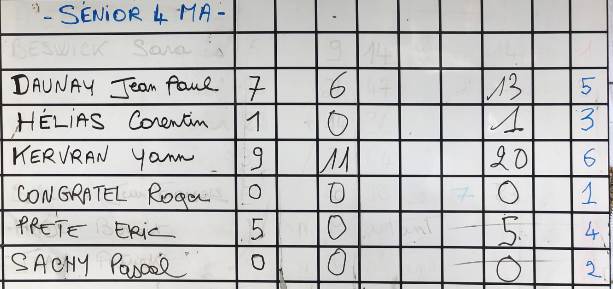 - SÉNIOR 4 MA -
BESWICK Sara 9 14
DAUNAY Jean Paul 7 6 13 5
HÉLIAS Corentin 1 0 1 3
KERVRAN Yann 9 11 20 6
CONGRATEL Roger 0 0 0 1
PRÊTE Eric 5 0 5 4
SACHY Pascal 0 0 0 2